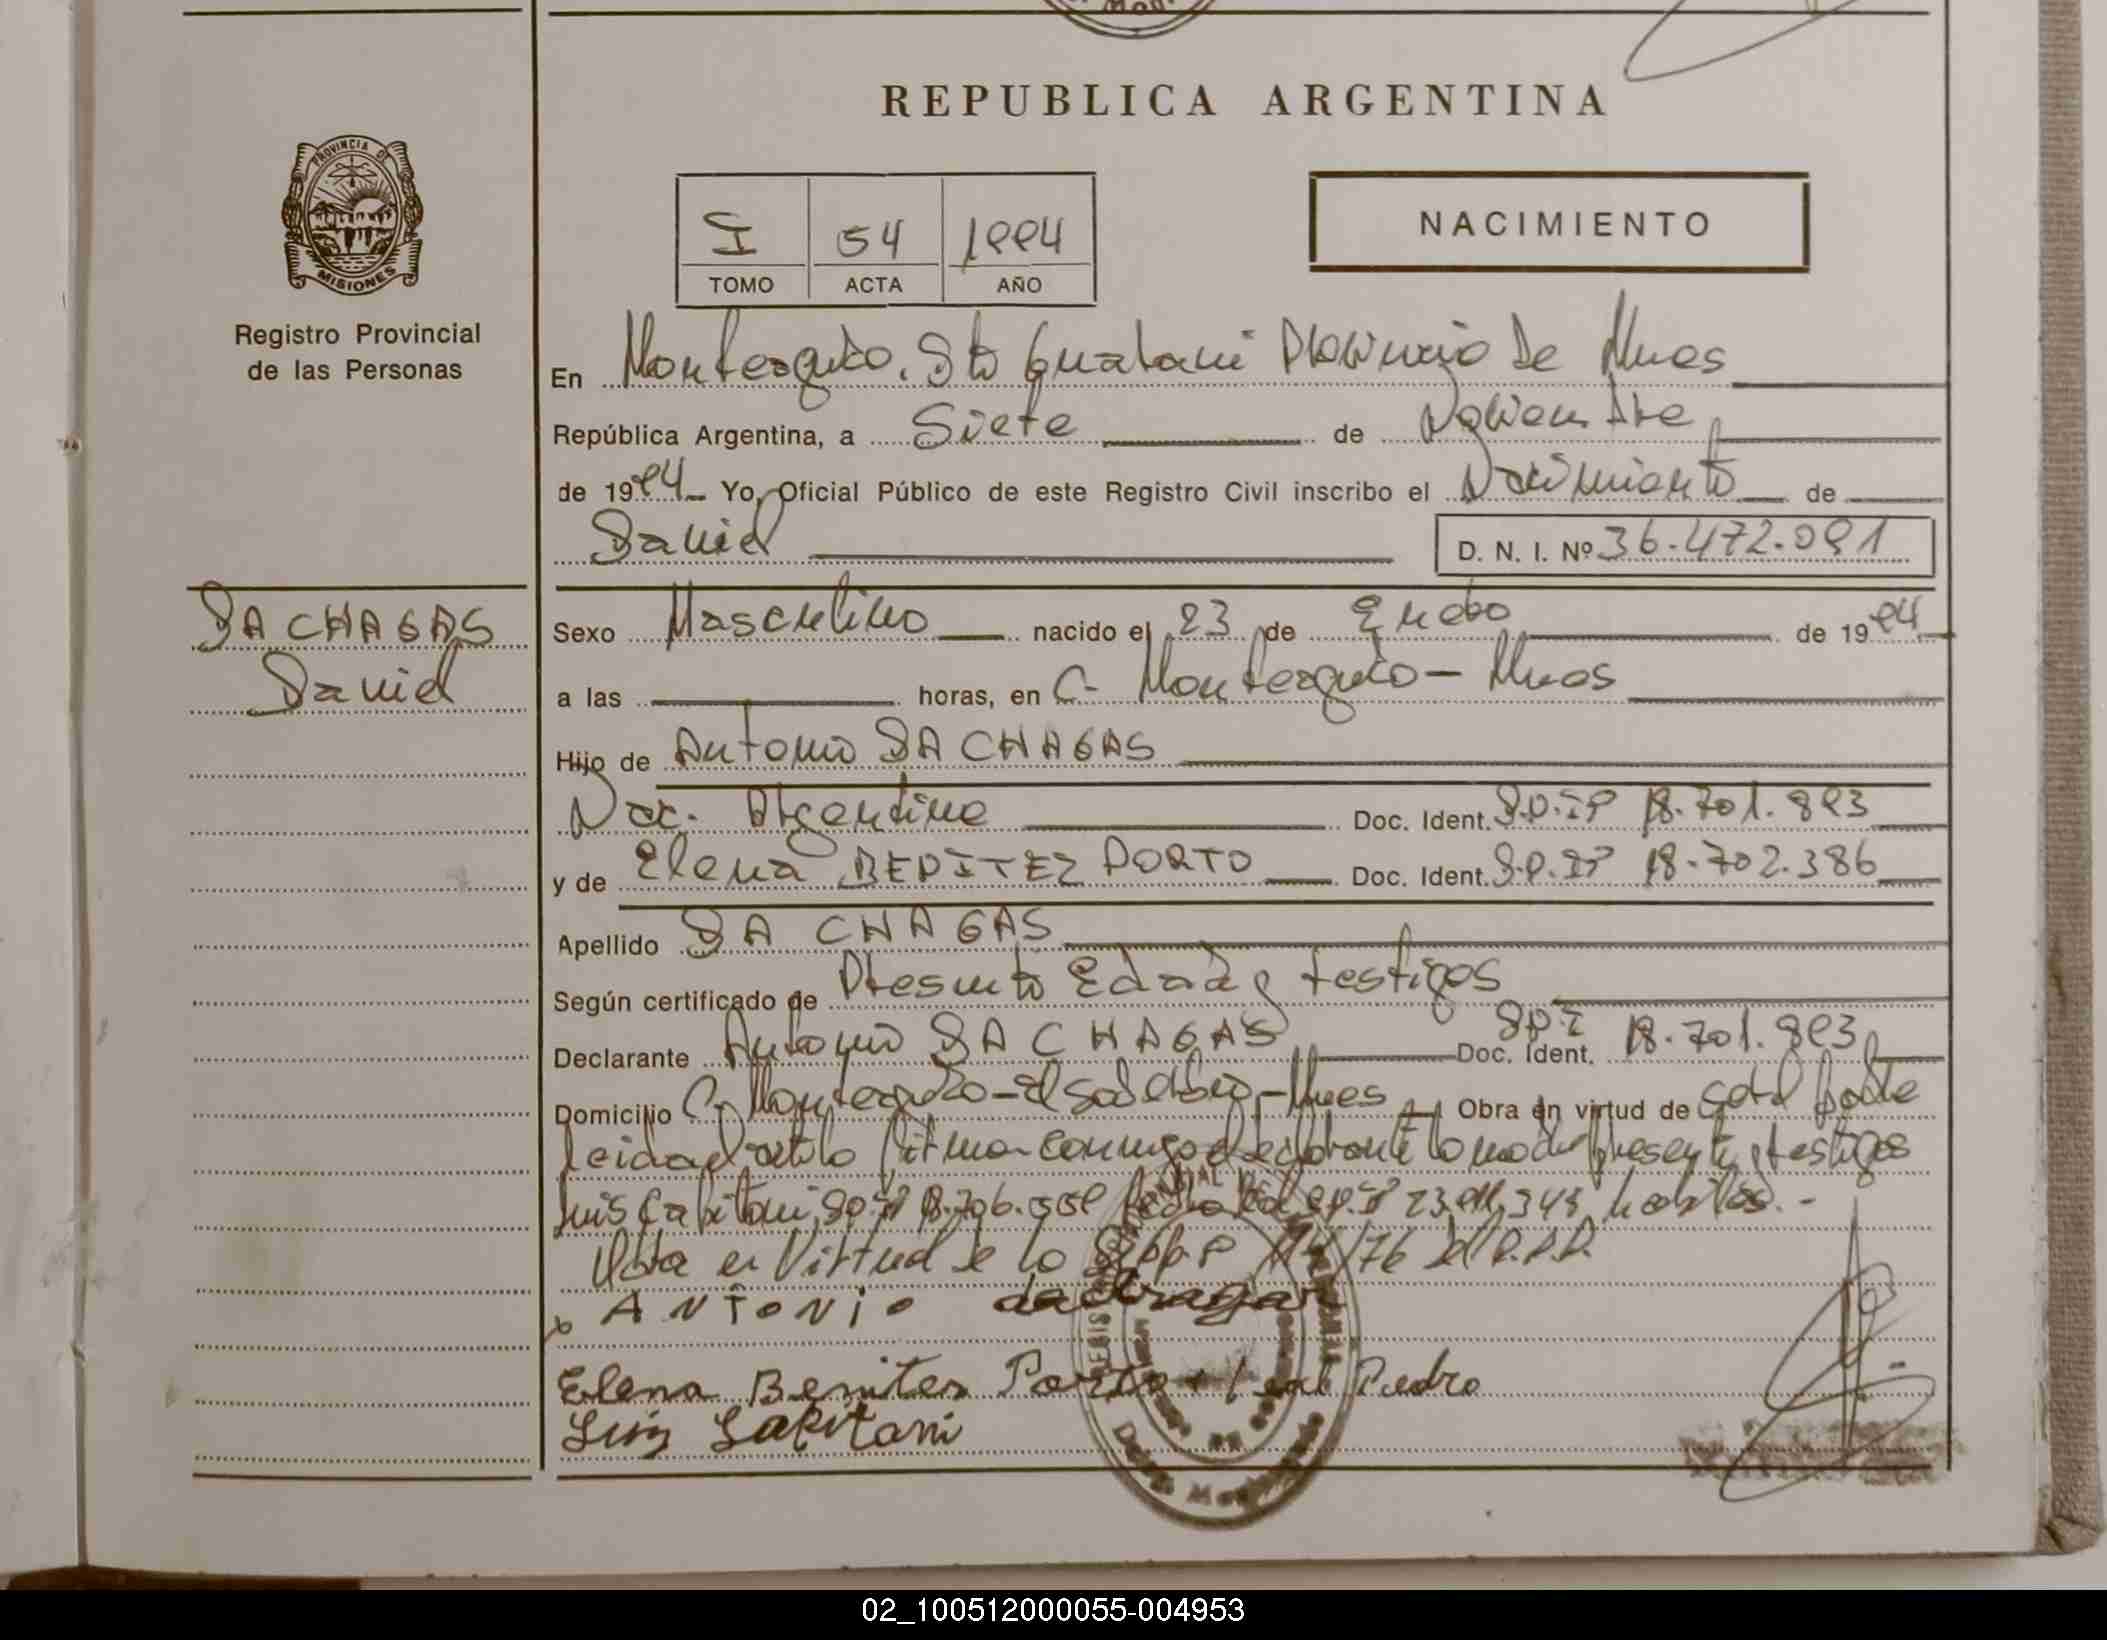 REPUBLICA ARGENTINA
PROVINCIA DE
MISIONES
Registro Provincial
de las Personas
NACIMIENTO
I 54 1994
TOMO ACTA AÑO
En Monteagudo. Dto Guarani Provincia De Mnes
República Argentina, a Siete de Noviembre
de 1994 Yo, Oficial Público de este Registro Civil inscribo el Nacimiento de
Daniel D. N. I. Nº 36.472.091
DA CHAGAS
Daniel
Sexo Masculino nacido el 23 de Enero de 1994
a las horas, en C. Monteagudo - Mnes
Hijo de Antonio DA CHAGAS
Nac. Argentina Doc. Ident. 18.701.893
y de Elena BENITEZ PORTO Doc. Ident. 18.702.386
Apellido DA CHAGAS
Según certificado de Presunta Edad y testigos
Declarante Antonio DA CHAGAS Doc. Ident. 18.701.893
Domicilio C. Monteagudo - El Soberbio - Mnes Obra en virtud de
Leida el acta firma conmigo el declarante la madre presente y testigos
Luis Capitani habiles. -
Obra en Virtud de lo 14/76 del R.P.P.
x ANTONIO da Chagas
Elena Benites Porto Leal Pedro
Luis Capitani
02_100512000055-004953